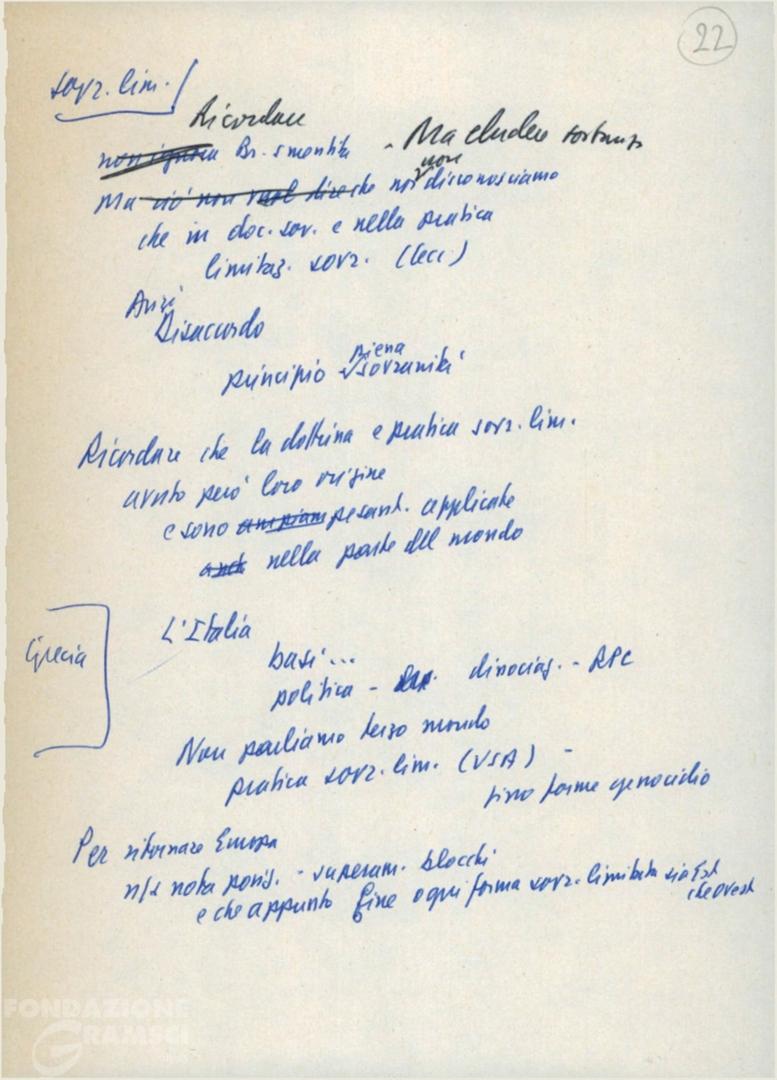 22
sovr. lim.
Ricordare
non ignora Br. smentita - Ma eludere
Ma ciò non vuol dire che noi non disconosciamo
che in doc. sov. e nella pratica
limitaz. sovr. (Cecc)
Anzi
Disaccordo
principio piena sovranità
Ricordare che la dottrina e pratica sovr. lim.
avuto però loro origine
e sono ampiam pesant. applicate
anch nella parte del mondo
L'Italia
Grecia
basi...
politica - dissociaz. - RPC
Non parliamo terzo mondo
pratica sovr. lim. (USA) -
fino forme genocidio
Per ritornare Europa
n/s nota posiz. - superam. blocchi
e che appunto fine ogni forma sovr. limitata sia Est
che Ovest
FONDAZIONE
GRAMSCI